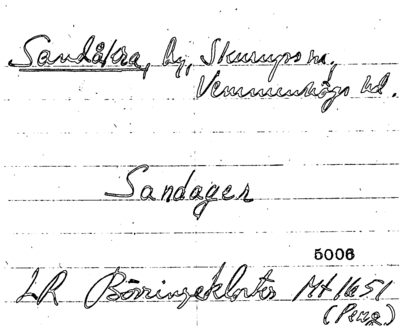 Sandåkra, by, Skurups sn,
Vemmenhögs hd.
Sandager
5006
LR Börringekloster Mt 1651
(Peng)